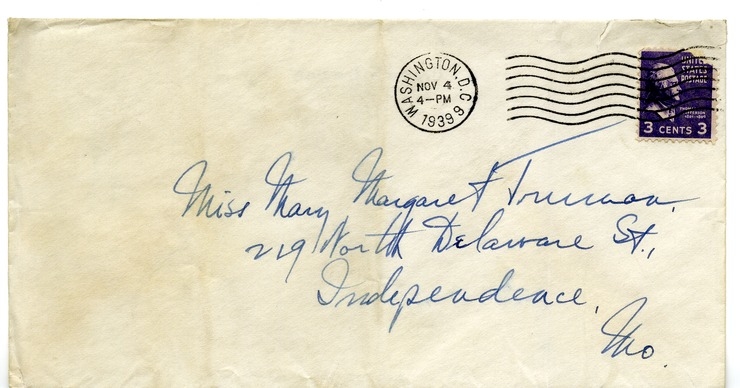 WASHINGTON, D.C.
NOV 4
4-PM
1939
9
UNITED
STATES
POSTAGE
THOMAS
JEFFERSON
1801-1809
3 CENTS 3
Miss Mary Margaret Truman,
219 North Delaware St.,
Independence,
Mo.